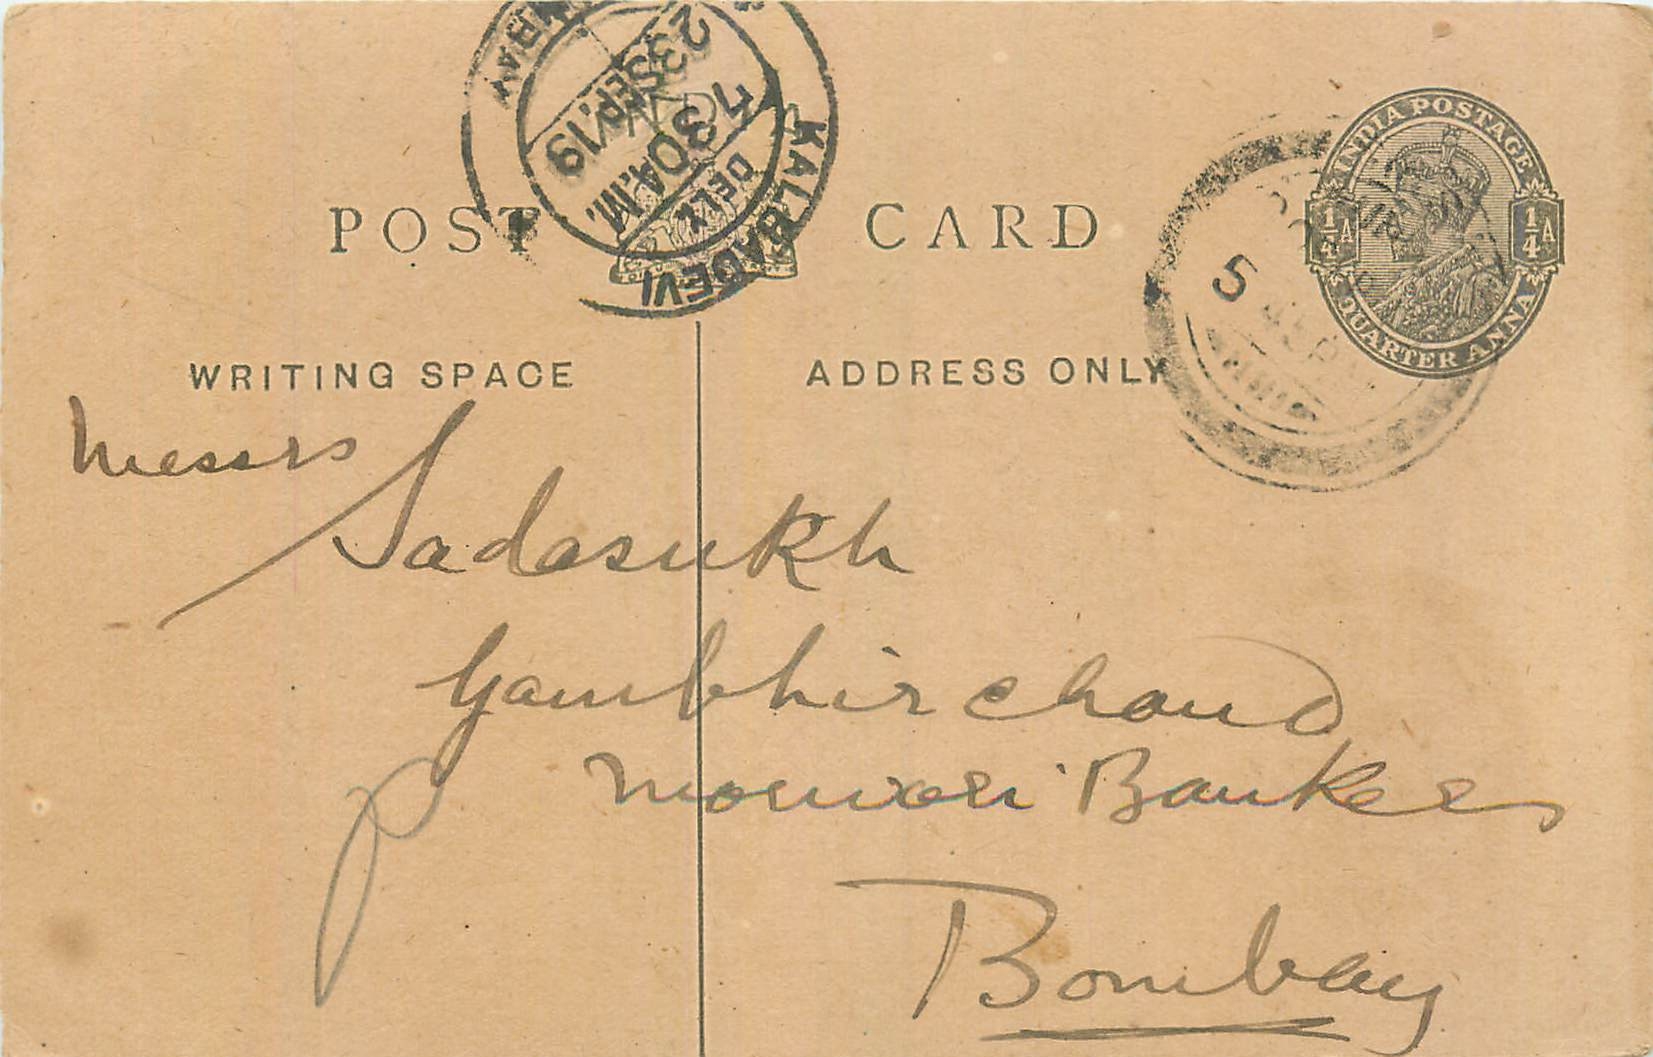 BOMBAY
23 SEP. 19
7 30 A.M.
DELY.
KALBADEVI
POST CARD
INDIA POSTAGE
¼ A ¼ A
QUARTER ANNA
5
WRITING SPACE
ADDRESS ONLY
Messrs
Sadasukh
Gambhirchand
Morwari Bankers
Bombay